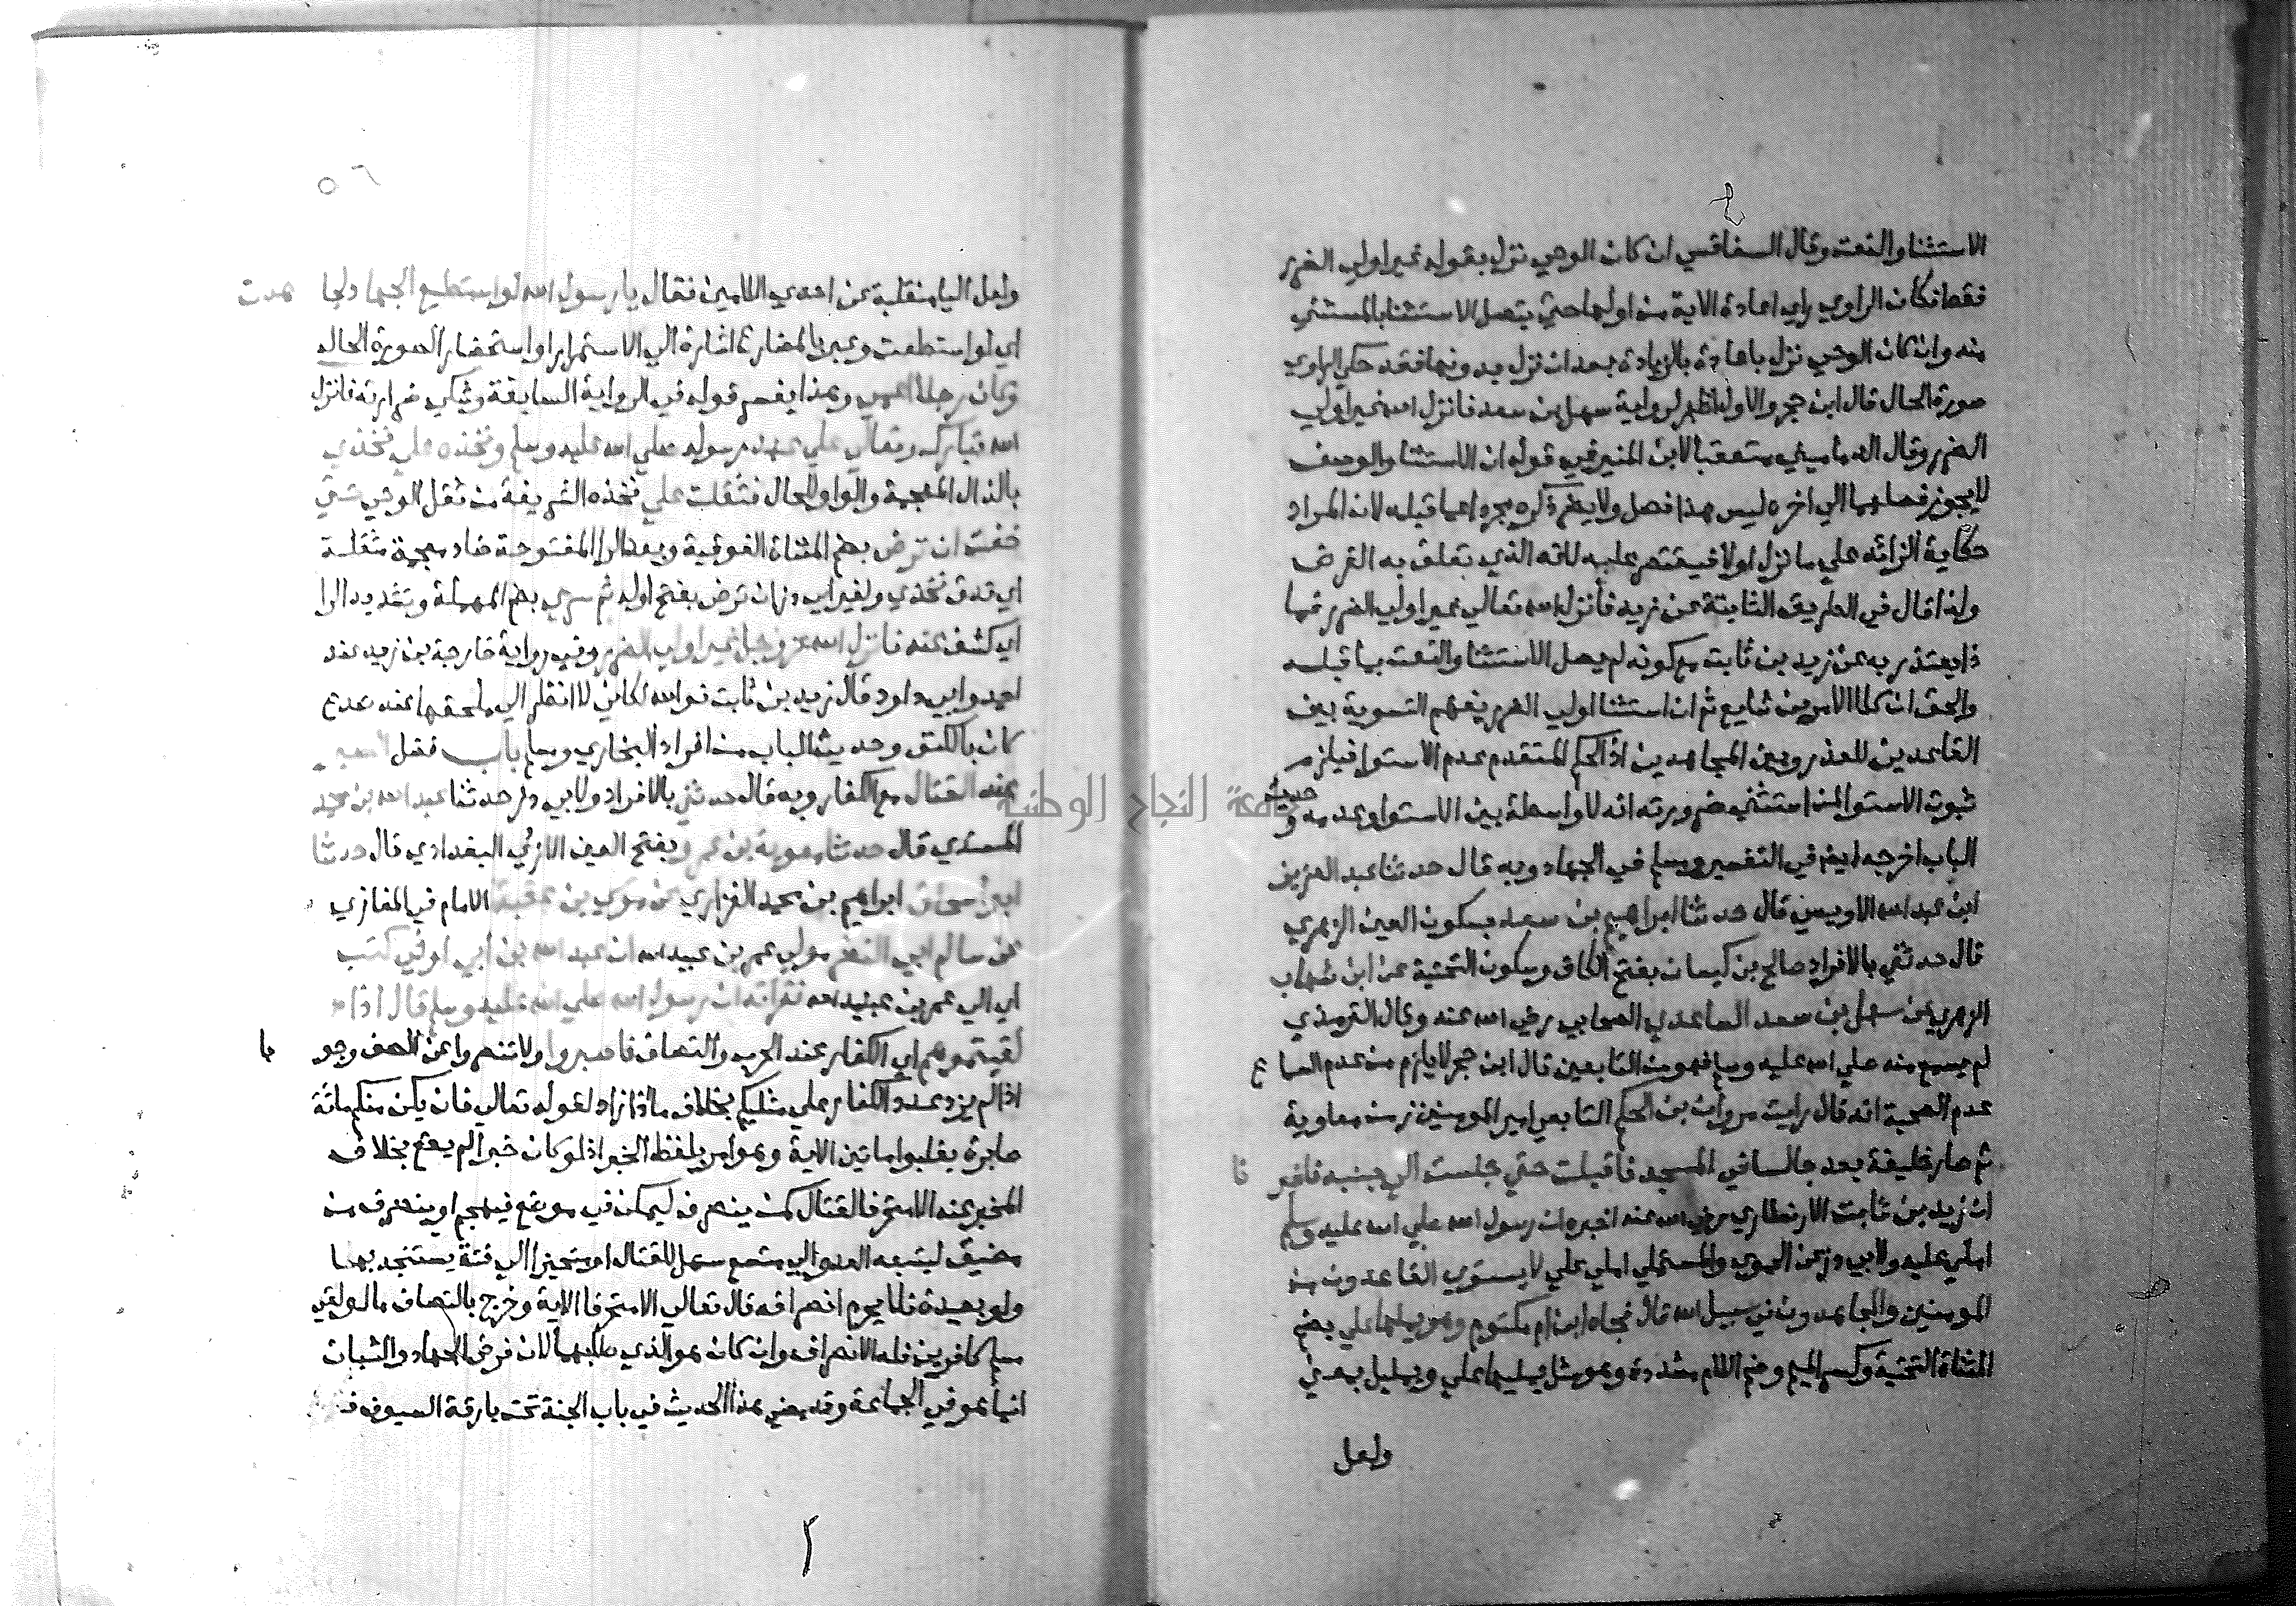 الاستثنا والنعت وقال السفاقسي ان كان الوحي نزل بقوله غير اولي الضرر
فقط فكان الراوي راي اعادة الاية من اولها حتي يتصل الاستثنا بالمستثني
منه وان كان الوحي نزل باعادة بالزيادة بعد ان نزل بدونها فقد حكي الراوي
صورة الحال قال ابن حجر والاول اظهر لرواية سهل بن سعد فانزل الله غير اولي
الضرر وقال الدماميني متعقبا لابن المنير في قوله ان الاستثنا والوصف
لا يجوز فصلهما الي اخره ليس هذا فصل ولا يضر ذكره مجردا عما قبله لان المراد
حكاية الزائد علي ما نزل اولا فيقتصر عليه لانه الذي يتعلق به الغرض
ولذا قال في الطريق الثانية عن زيد فأنزل الله تعالي غير اولي الضرر فما
ذا يعتذر به عن زيد بن ثابت مع كونه لم يصل الاستثنا والنعت بما قبله
والحق ان كلا الامرين شايع ثم ان استثنا اولي الضرر يفهم التسوية بين
القاعدين للعذر وبين المجاهدين اذ الحكم المتقدم عدم الاستوا فيلزم
ثبوت الاستوا لمن استثني ضرورته انه لا واسطة بين الاستوا وعدمه و حديث
الباب اخرجه ايضا في التفسير ومسلم في الجهاد وبه قال حدثنا عبد العزيز
ابن عبد الله الاويسي قال حدثنا ابراهيم بن سعد بسكون العين الزهري
قال حدثني بالافراد صالح بن كيسان بفتح الكاف وسكون التحتية عن ابن شهاب
الزهري عن سهل بن سعد الساعدي الصحابي رضي الله عنه وقال الترمذي
لم يسمع منه صلي الله عليه وسلم فهو من التابعين قال ابن حجر لا يلزم من عدم السماع
عدم الصحبة انه قال رايت مروان بن الحكم التابعي امير المومنين زمن معاوية
ثم صار خليفة بعد جالسا في المسجد فاقبلت حتي جلست الي جنبه فاخبرنا
ان زيد بن ثابت الانصاري رضي الله عنه اخبره ان رسول الله صلي الله عليه وسلم
املي عليه ولابي ذر عن الحموي والمستملي املي علي لا يستوي القاعدون من
المومنين والمجاهدون في سبيل الله قال فجاه ابن ام مكتوم وهو يملها علي بضم
المثناة التحتية وكسر الميم وضم اللام مشددة وهو مثل يمليها علي ويملل بمعني
ولعل
٥٦
ولعل اليا منقلبة عن احدي اللامين فقال يا رسول الله لو استطيع الجهاد لجاهدت
اي لو استطعت وعبر بالمضارع اشارة الي الاستمرار او استحضارا لصورة الحال
وكان رجلا اعمي وهذا يفسر قوله في الرواية السابقة وشكي ضرارته فانزل
الله تبارك وتعالي علي رسوله صلي الله عليه وسلم وفخذه علي فخذي
بالذال المعجمة والواو للحال فثقلت علي فخذه الشريفة من ثقل الوحي حتي
خفت ان ترض بضم المثناة الفوقية وبعد الرا المفتوحة ضاد معجمة مثقلة
اي تدق فخذي ولغير ابي ذر ان ترض بفتح اوله ثم سري بضم المهملة وتشديد الرا
اي كشف عنه فانزل الله عز وجل غير اولي الضرر وفي رواية خارجة بن زيد عند
احمد وابي داود قال زيد بن ثابت فوالله لكاني لا انظر الي ملحقها عند صدع
كان بالكتف وحديث الباب من افراد البخاري ومسلم باب فضل الصبر
عند القتال مع الكفار وبه قال حدثني بالافراد ولابي ذر حدثنا عبد الله بن محمد
المسندي قال حدثنا معوية بن عمرو بفتح العين الازدي البغدادي قال حدثنا
ابو اسحاق ابراهيم بن محمد الفزاري عن موسي بن عقبة الامام في المغازي
عن سالم ابي النضر مولي عمر بن عبيد الله ان عبد الله بن ابي اوفي كتب
اي الي عمر بن عبيد الله فقراته ان رسول الله صلي الله عليه وسلم قال اذا
لقيتموهم اي الكفار عند الحرب والتصاف فاصبروا ولا تنصرفوا عن الصف وجوبا
اذا لم يزد عدد الكفار علي مثليكم بخلاف ما اذا زاد لقوله تعالي فان يكن منكم مائة
صابرة يغلبوا ماتين الاية وهو امر بلفظ الخبر اذ لو كان خبرا لم يقع بخلاف
المخبر عنه الا متحرفا لقتال كمن ينصرف ليكمن في موضع فيهجم او ينصرف من
مضيق ليتبعه العدو الي متسع سهل للقتال او متحيزا الي فئة يستنجد بها
ولو بعيدة فلا يحرم انصرافه قال تعالي الا متحرفا الاية وخرج بالتصاف ما لو لقي
مسلم كافرين فله الانصراف وان كان هو الذي طلبهما لان فرض الجهاد والثبات
انما هو في الجماعة وقد مضي هذا الحديث في باب الجنة تحت بارقة السيوف
جامعة النجاح الوطنية